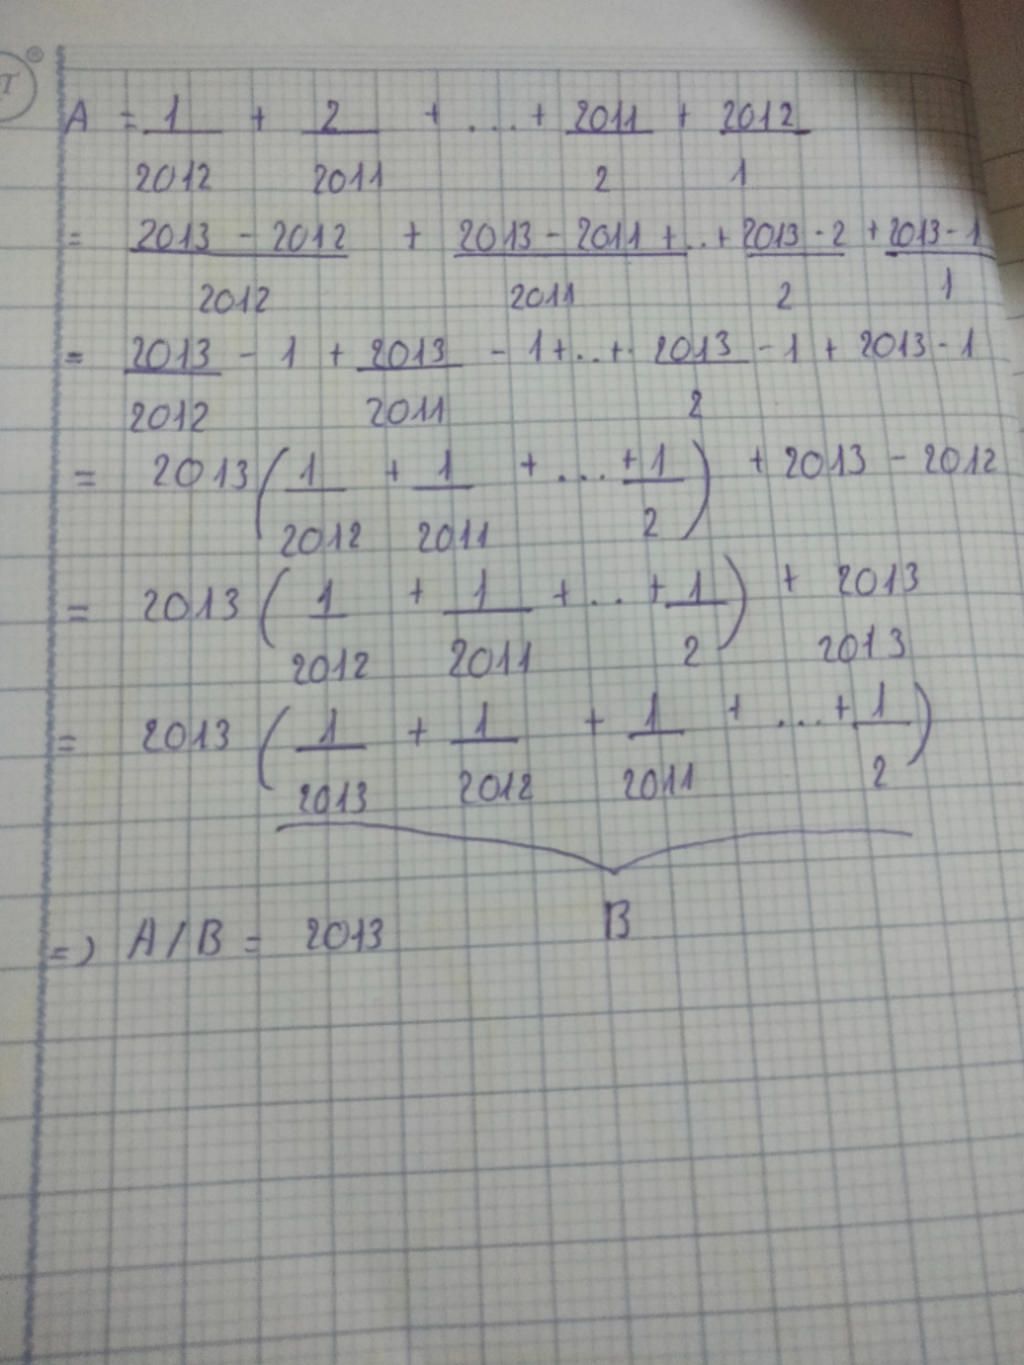 A = 1/2012 + 2/2011 + ... + 2011/2 + 2012/1
= 2013 - 2012/2012 + 2013 - 2011/2011 + .. + 2013 - 2/2 + 2013 - 1/1
= 2013/2012 - 1 + 2013/2011 - 1 + .. + 2013/2 - 1 + 2013 - 1
= 2013 (1/2012 + 1/2011 + .... + 1/2) + 2013 - 2012
= 2013 (1/2012 + 1/2011 + .. + 1/2) + 2013/2013
= 2013 (1/2013 + 1/2012 + 1/2011 + ... + 1/2)
B
=) A / B = 2013